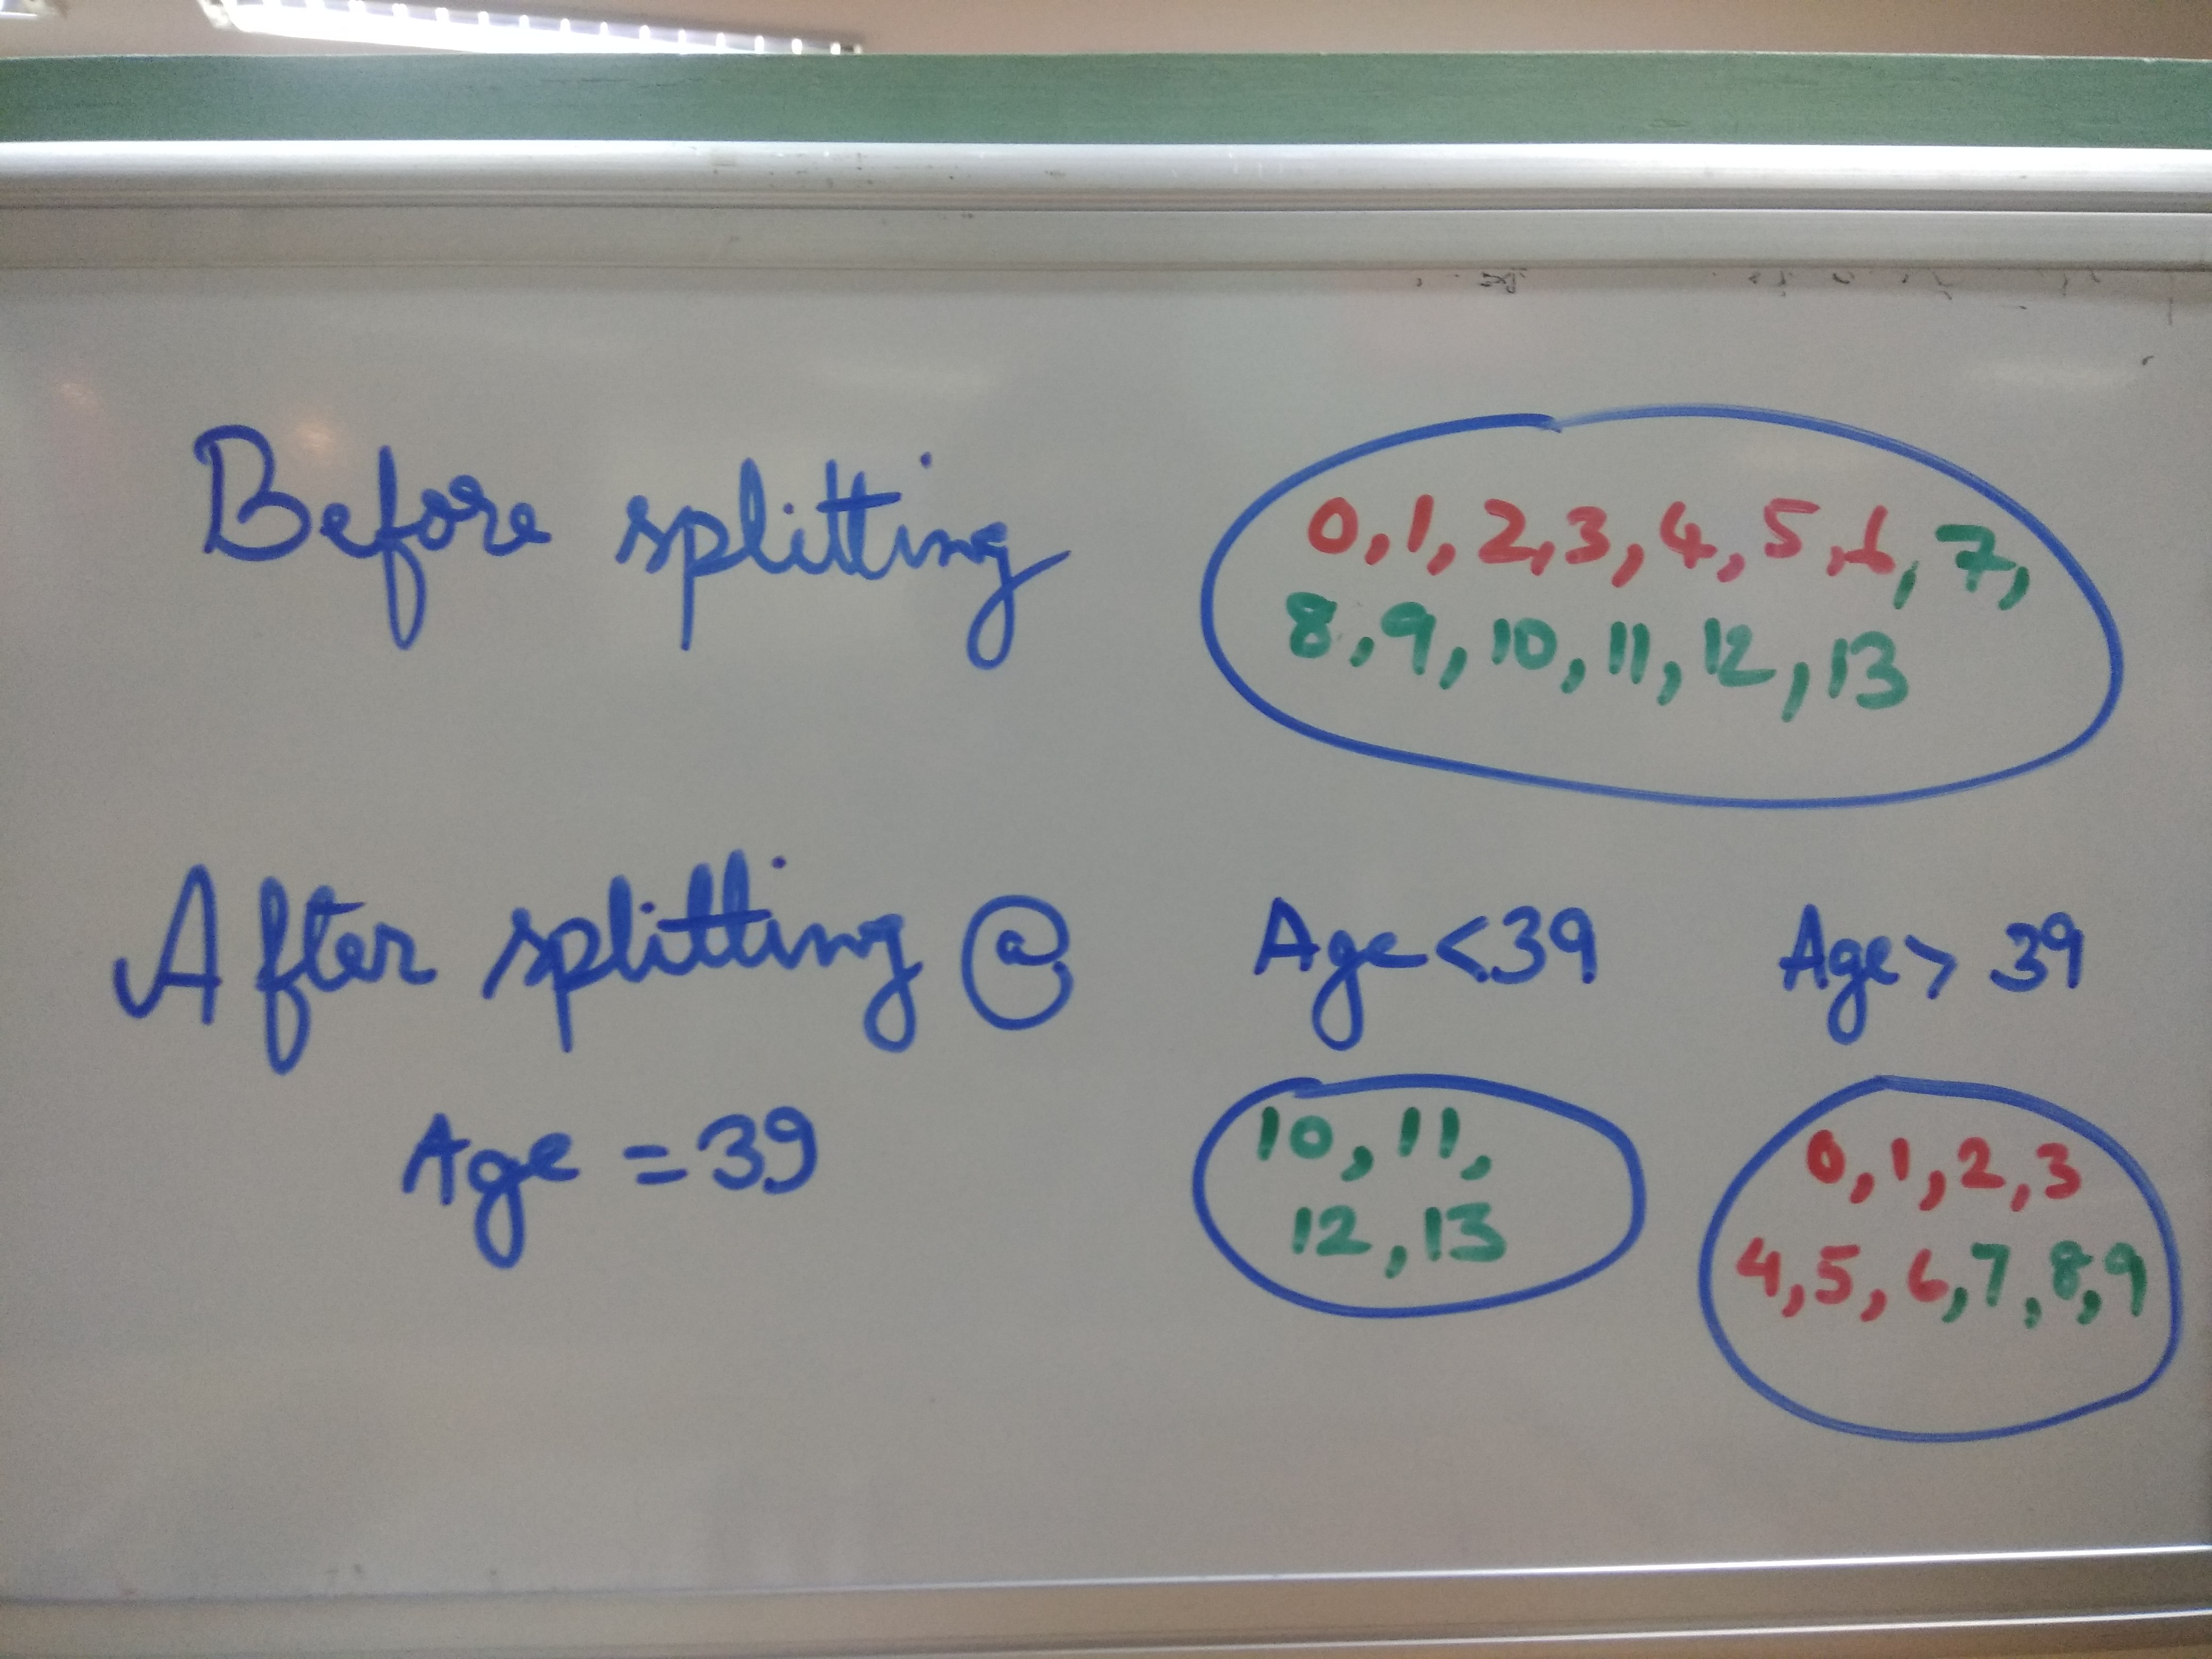 Before splitting
0, 1, 2, 3, 4, 5, 6, 7,
8, 9, 10, 11, 12, 13
After splitting @
Age = 39
Age < 39
10, 11,
12, 13
Age > 39
0, 1, 2, 3
4, 5, 6, 7, 8, 9